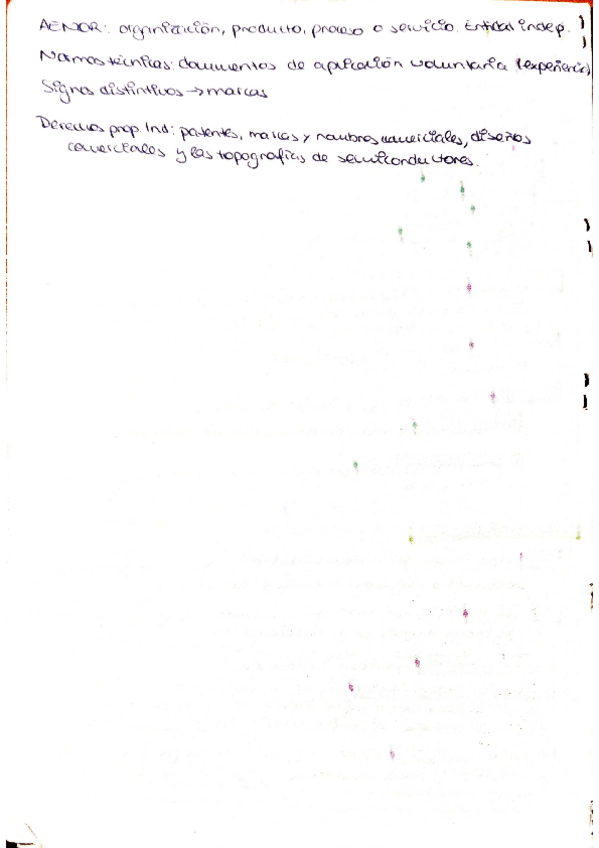 AENOR: organización, producto, proceso o servicio. Entidad indep.
Normas técnicas: documentos de aplicación voluntaria (experiencia)
Signos distintivos → marcas
Derechos prop. Ind: patentes, marcas y nombres comerciales, diseños
comerciales y las topografías de semiconductores.